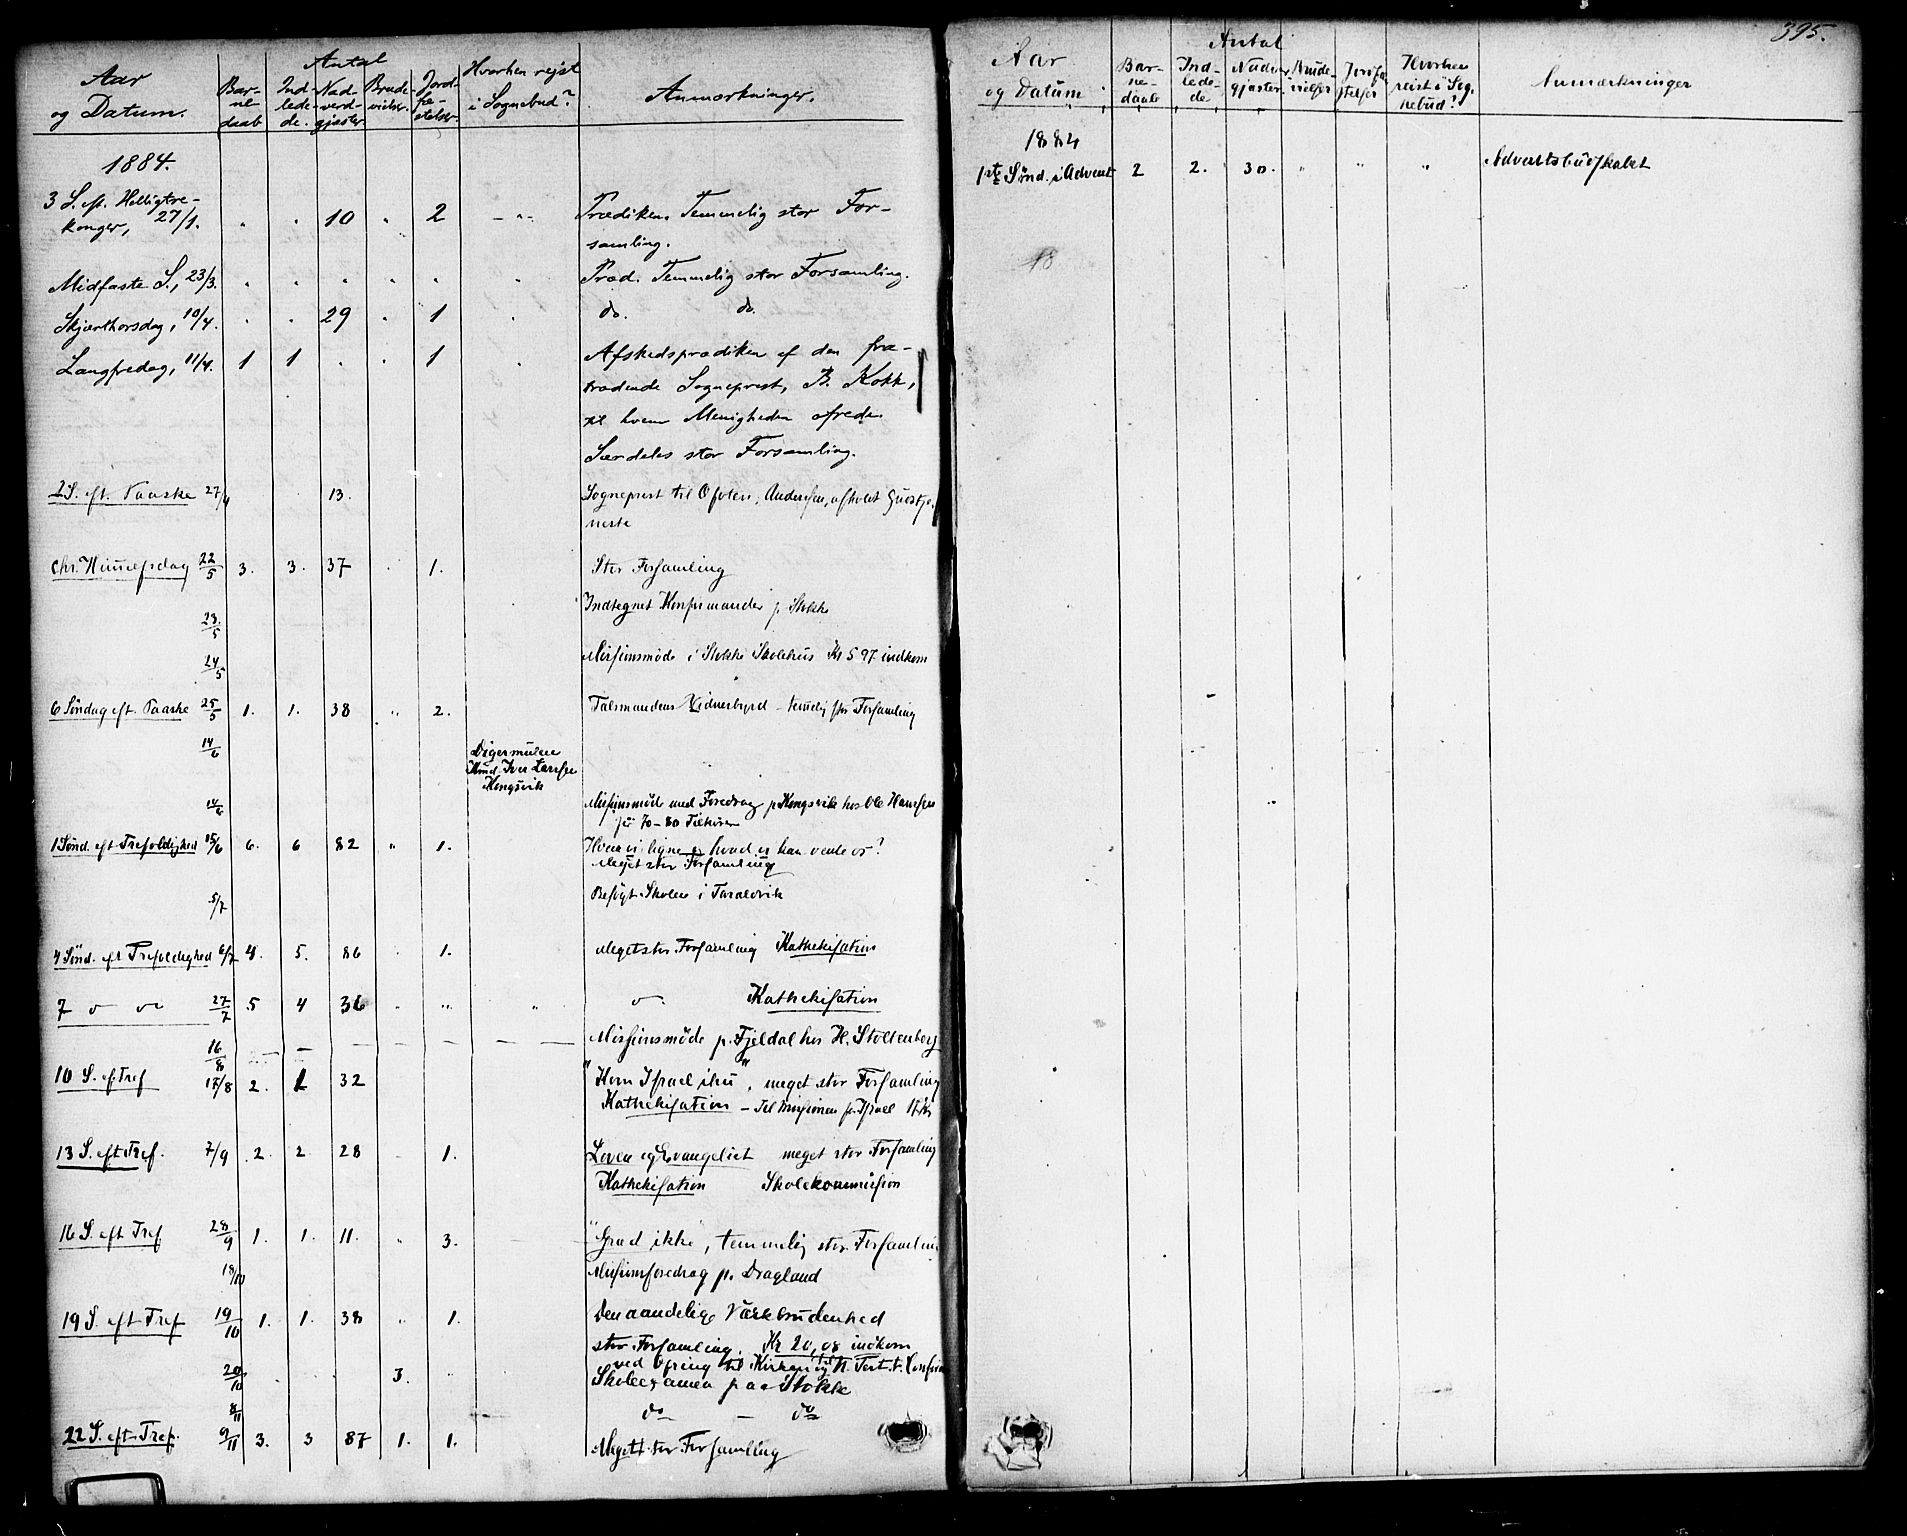 Aar og Datum. Antal Barnedaab Indledede. Nadverdgjæster Brudevielser Jordfæstelser. Hvorhen rejst i Sognebud? Anmærkninger.
1884.
3 S. eft. Helligtre-
konger, 27/1. " " 10 " 2 - " - Prædiken. Temmelig stor For-
samling.
Midfaste S., 23/3. " " " " " " Præd. Temmelig stor Forsamling.
Skjærthorsdag, 10/4. " " 29 " 1 " do. do.
Langfredag, 11/4. 1 1 " " 1 " Afskedsprædiken af den fra-
trædende Sogneprest, B. Kokk,
til hvem Menigheden ofrede.
Særdeles stor Forsamling.
2 S. eft. Paaske 27/4 13. Sogneprest til Ofoten, Andersen, afholdt Gudstje-
neste
Chr. Himmelfsdag 22/5 3. 3. 37 " 1. Stor Forsamling
23/5 Indtegnet Konfirmander p. Stokke
24/5 Missionsmöde i Stokke Skolehus Kr 5 97 indkom
6 Söndag eft. Paaske 25/5 1. 1. 38 " 2. Talsmandens Vidnesbyrd - temelig stor Forsamling
14/6 Digermulen
Kongsvik
14/6 Missionsmöde med Foredrag p. Kongsvik hos Ole Hansen
för 70-80 Tilhörere
1 Sönd. eft Trefoldighed 15/6 6. 6 82 " 1. Hvem vi ligne og hvad vi kan vente os?
Meget stor Forsamling
5/7 Besögt Skolen i Taraldvik
4 Sönd. eft Trefoldighed 6/7 4. 5. 86 " 1. Meget stor Forsamling Kathekisation
7 do do 27/7 5 4 36 " " " do Kathekisation
16/8 Missionsmöde p. Fjeldal hos H. Stoltenberg
10 S. eft Tref 17/8 2. 1 32 meget stor Forsamling
Kathekisation - Til Missionen for Israel
13 S. eft Tref. 7/9 2. 2 28 1. Loven og Evangeliet meget stor Forsamling
Kathekisation Skolekommission
16 S. eft Tref 28/9 1. 1. 11. " 3. "Græd ikke", temmelig stor Forsamling
18/10 Missionsforedrag p. Dragland
19 S. eft Tref 19/10 1. 1. 38 " 1. Den aandelige Værkbrudenhed
stor Forsamling. Kr 20,08 indkom
ved Ofring til Kirken og N. Test. t. Confirm
20/10 " " " 3. " Skoleexamen paa Stokke
8/11 do - do
22 S. eft Tref. 9/11 3. 3 87 1. 1. Meget stor Forsamling
395.
Aar og Datum Antal Barnedaab Indledede Nadvergjæster Brudevielser Jordfæstelser Hvorhen reist i Sognebud? Anmærkninger
1884
1ste Sönd. i Advent 2 2. 30. " " " Adventsbudskabet
18